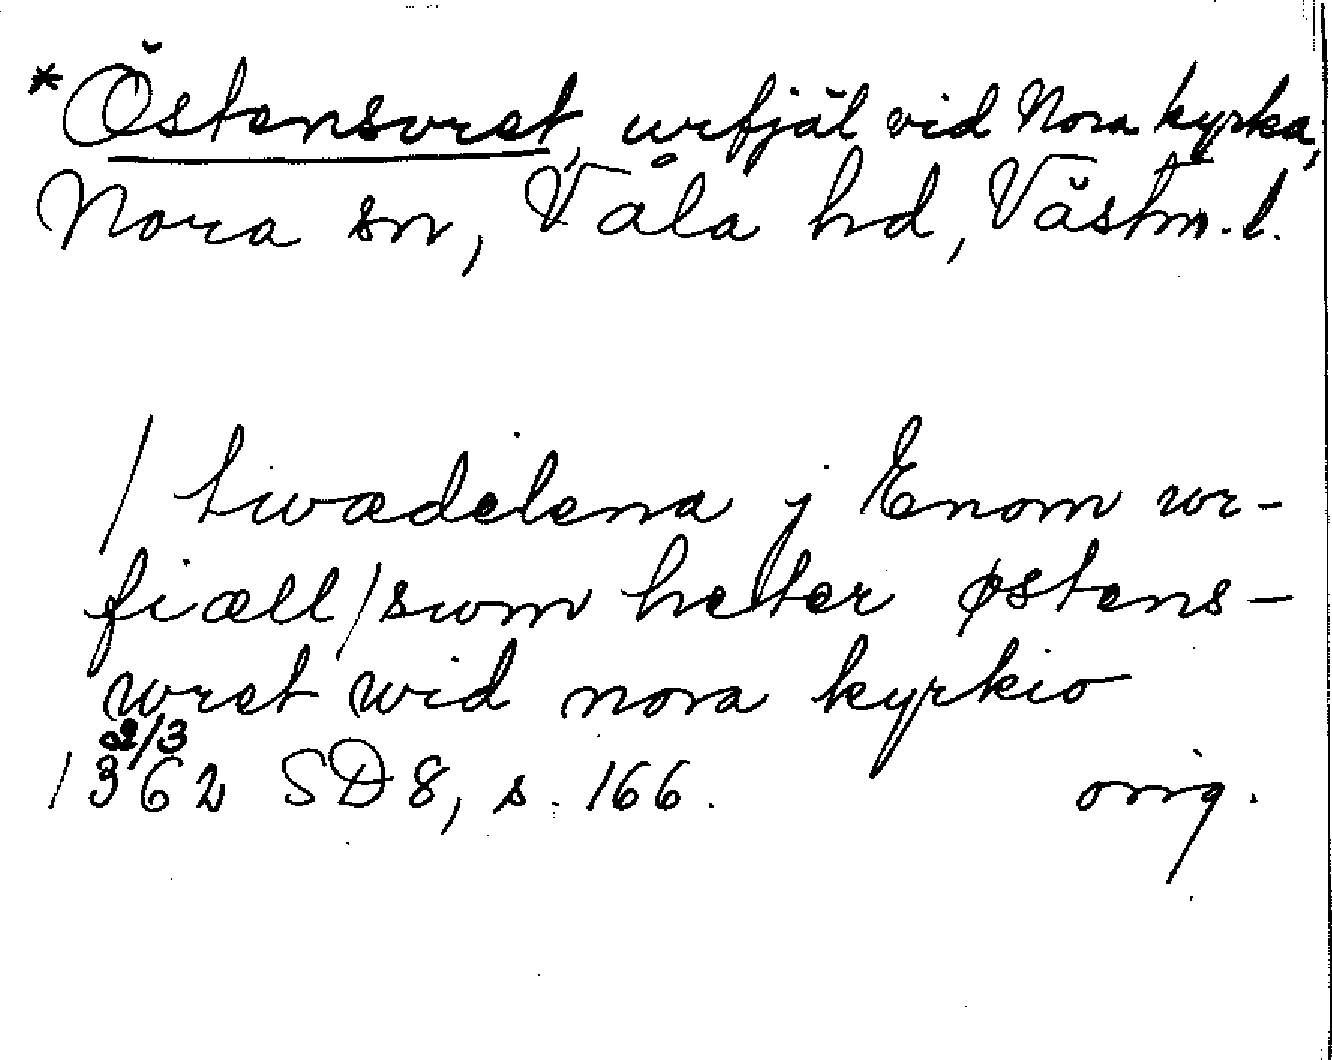 *Östensvret, urfjäl vid Nora kyrka,
Nora sn, Våla hd, Västm.l.
/ twædelena j Enom wr-
fiæll/swm heter østens-
wret wid nora kyrkio
2/3
1362 SD8, s. 166. orig.